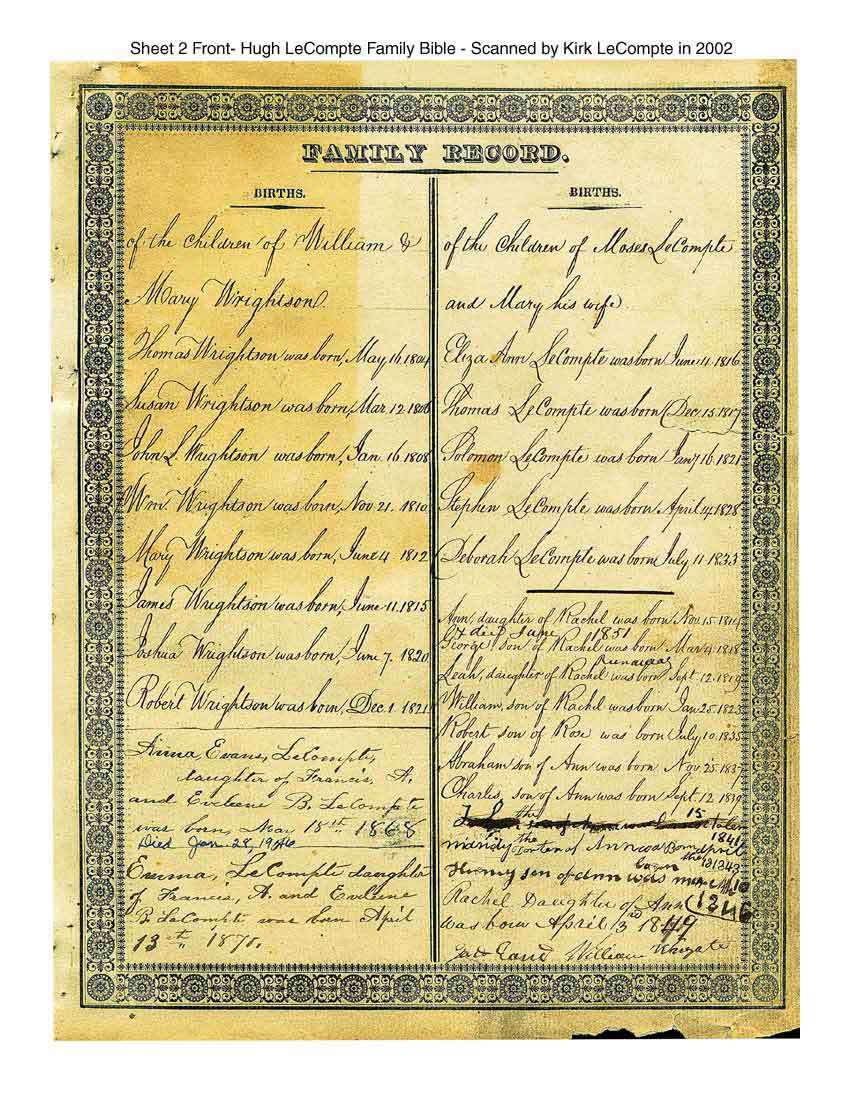 Sheet 2 Front- Hugh LeCompte Family Bible - Scanned by Kirk LeCompte in 2002
FAMILY RECORD.
BIRTHS.
of the children of William &
Mary Wrightson.
Thomas Wrightson was born, May 16 1804
Susan Wrightson was born, Mar. 12 1806
John S. Wrightson was born, Jan. 16 1808
Wm. Wrightson was born, Nov 21. 1810
Mary Wrightson was, born, June 4 1812
James Wrightson was born, June 11. 1815
Joshua Wrightson was born, June 7. 1820
Robert Wrightson was born, Dec. 1. 1821
Anna Evans, LeCompte,
daughter of Francis, A.
and Eveline B. LeCompte
was born, Nov 18th 1868
Died Jan. 28,
Emma, LeCompte daughter
of Francis, A. and Eveline
B. LeCompte was born April
13th 1870.
BIRTHS.
of the Children of Moses LeCompte
and Mary his wife.
Eliza Ann LeCompte was born June 11. 1816
Thomas LeCompte was born Dec. 15. 1817
Solomon LeCompte was born Jany 16. 1821
Stephen LeCompte was born April 14. 1828
Deborah LeCompte was born July 11. 1833
Ann, daughter of Rachel was born Nov. 15. 1814
& died June 1851
George, son of Rachel was born Mar. 4. 1818
Runaway
Leah, daughter of Rachel was born, Sept. 12. 1819
William, son of Rachel was born Jan 25. 1823
Robert son of Rose was born July 10. 1835
Abraham son of Ann was born Nov 25. 1837
Charles, son of Ann was born Sept. 12 1839
the 15
1841
of Ann was Born April
the
born
son of ann was
1846
Rachel Daughter of Ann
was born April 13rd 1849
William